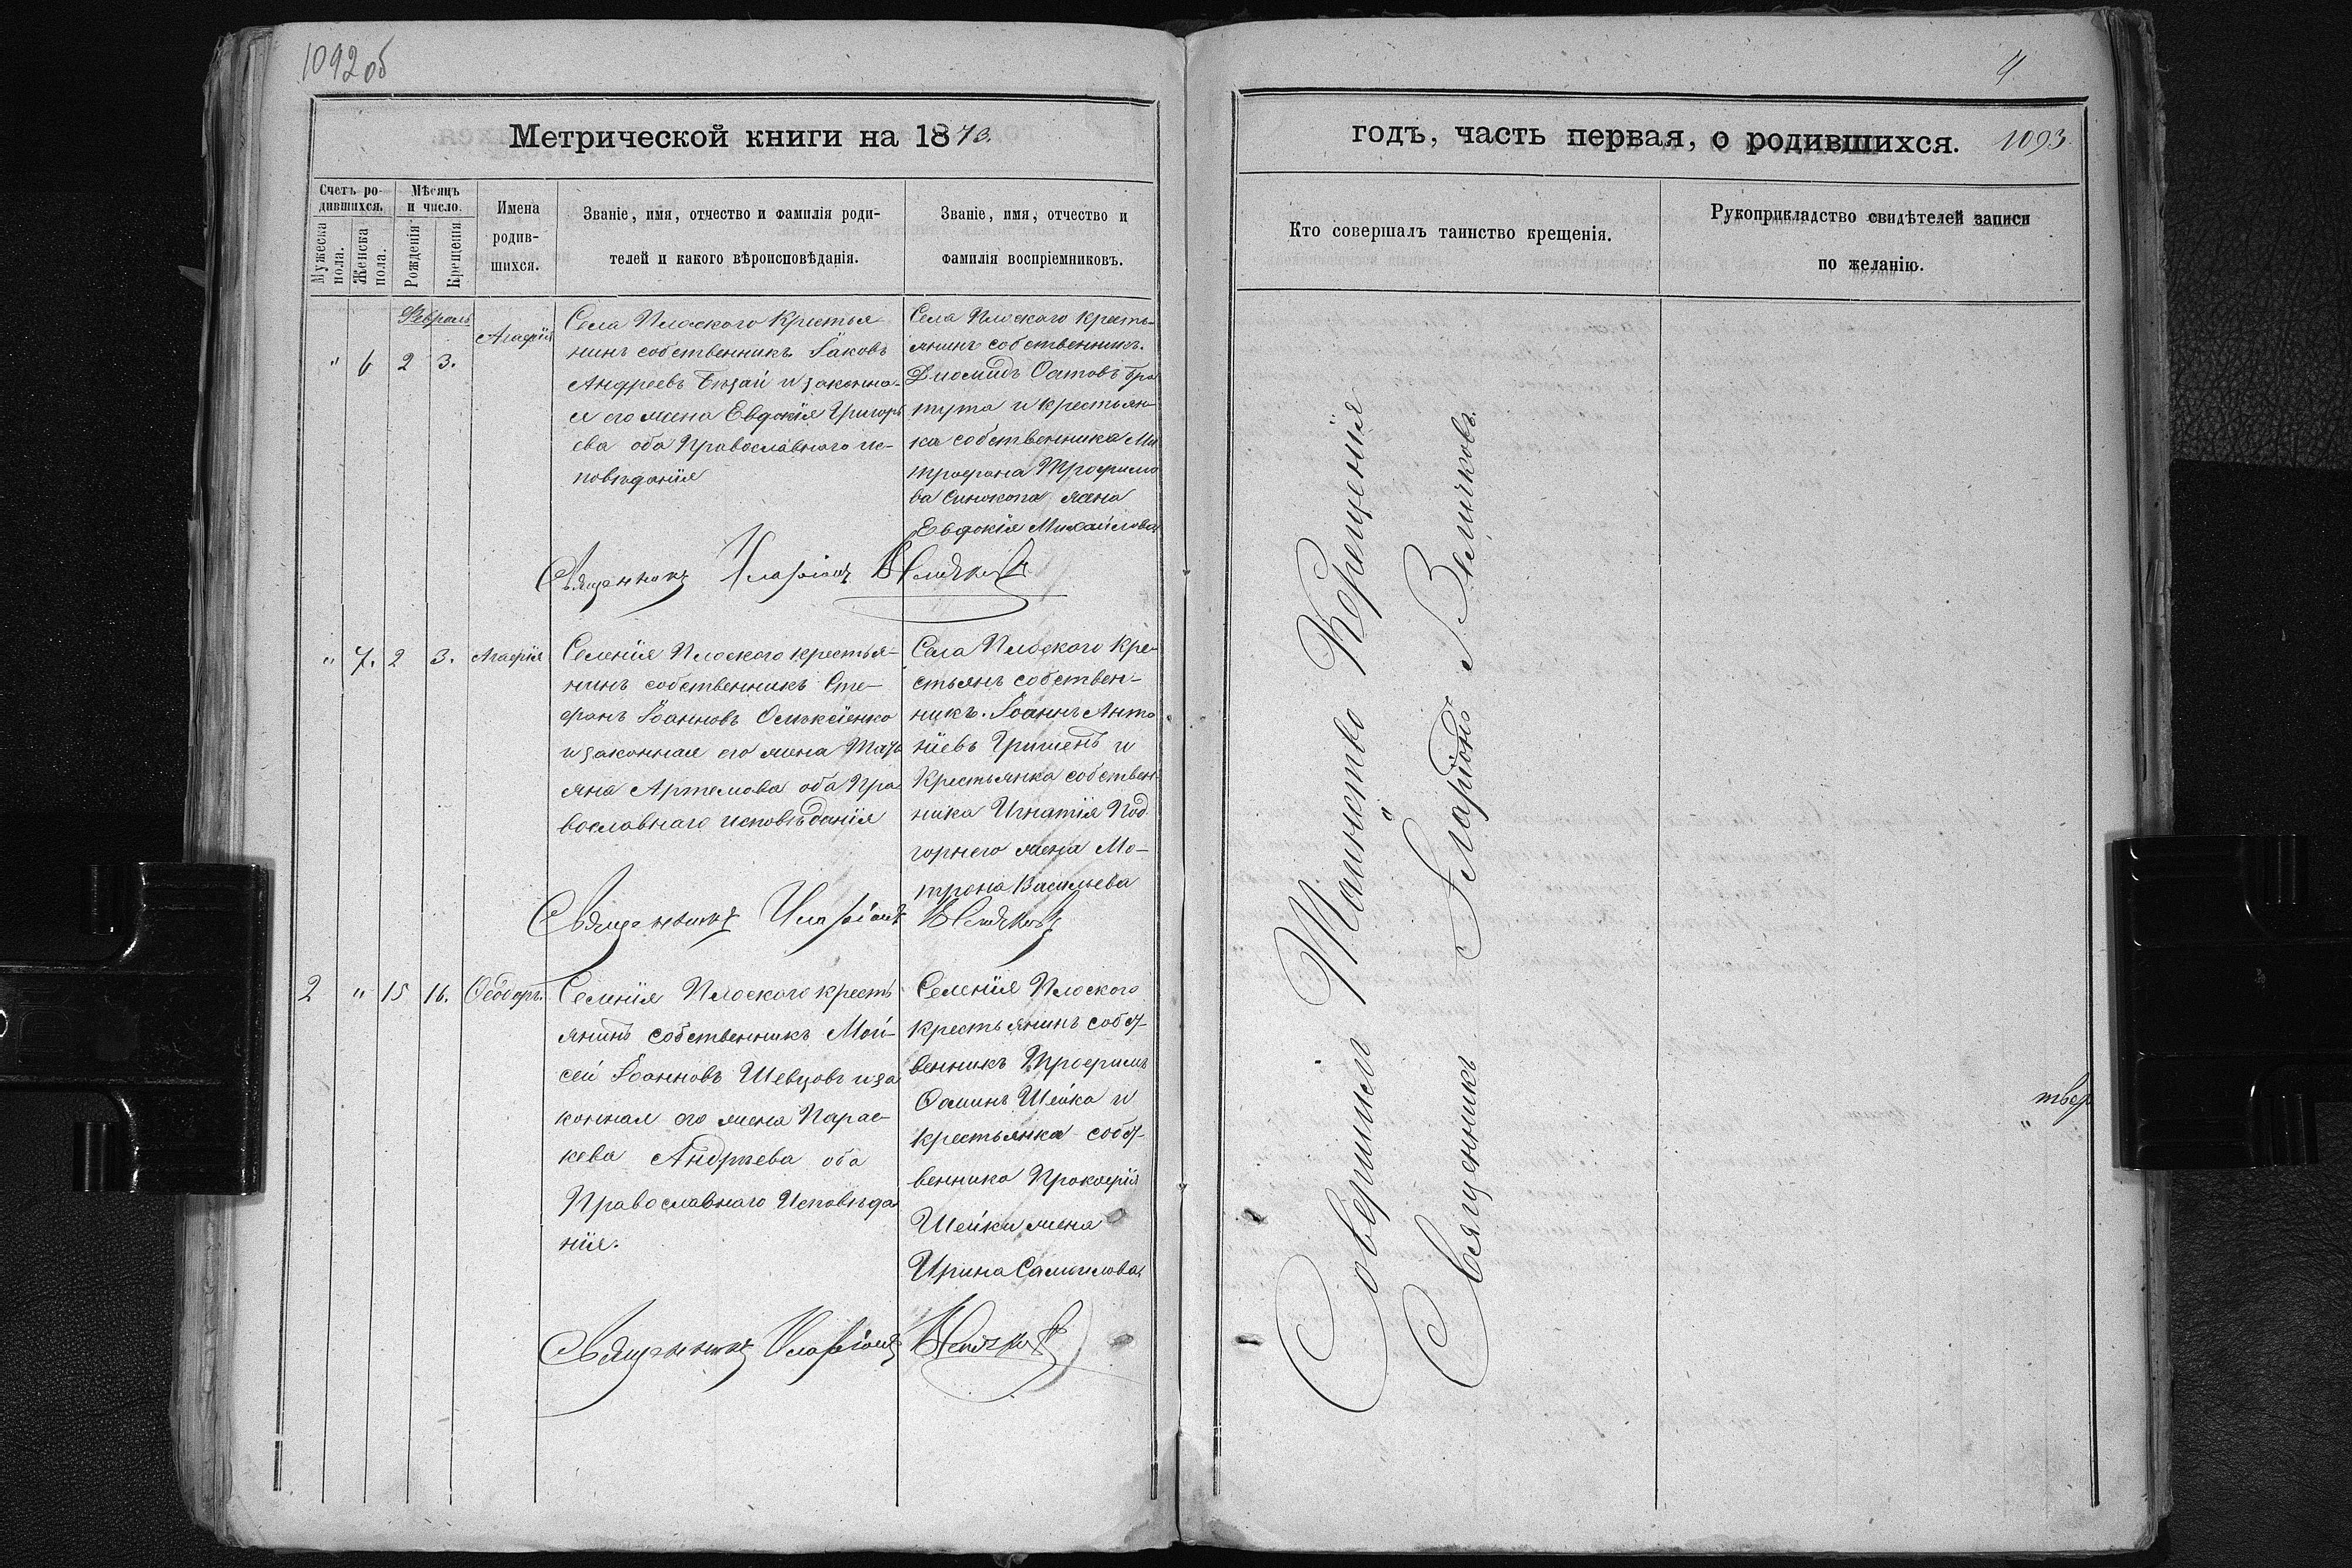 1092 об
Метрической книги на 1873.
Счетъ ро-
дившихся.
Мужеска
пола.
Женска
пола.
Мѣсяцъ
и число.
Рожденія
Крещенія
Имена
родив-
шихся.
Званіе, имя, отчество и фамилія роди-
телей и какого вѣроисповѣданія.
Званіе, имя, отчество и
фамилія воспріемниковъ.
Февраль
" 6 2 3.
Агафія
Села Плоского Крестья
нинъ собственникъ Іаковъ
Андреевъ и законна-
я его жена Евдокія Григорь
ева оба Православнаго ис-
повѣданія
Села Плоскаго кресть-
янинъ собственникъ.
Діомидъ
и крестьян-
ка собственника Ми
трофана Трофимо
ва жена
Евдокія Михайлова
Священникъ Иларіонъ Величковъ
" 7. 2 3. Агафія
Селенія Плоского крестья-
нинъ собственникъ Сте-
фанъ Іоанновъ
и законная его жена Тать
яна Артемова оба Пра
вославнаго исповѣданія
Села Плоского Кре-
стьянъ собствен-
никъ. Іоаннъ Анто
ніевъ и
Крестьянка собствен
ника Игнатія Под
горнего жена Мо-
трона Васильева
Священникъ Иларіонъ Величковъ
2 " 15 16. Ѳеодоръ.
Селенія Плоского кресть
янинъ собственникъ Мой-
сей Іоанновъ Шевцовъ и за
конная его жена Парас-
кева Андрѣева оба
Православнаго Исповѣда
нія.
Селенія Плоского
крестьянинъ собст-
венникъ Трофимъ
Ѳоминъ Шейка и
крестьянка собст-
венника Прокофія
Шейки жена
Ирина Самойлова
Священникъ Иларіонъ Величковъ
4
годъ, часть первая, о родившихся. 1093
Кто совершалъ таинство крещенія.
Рукоприкладство свидѣтелей записи
по желанію.
Совершилъ Таинство Крещенія
Священникъ Иларіонъ Величковъ.
твер
"